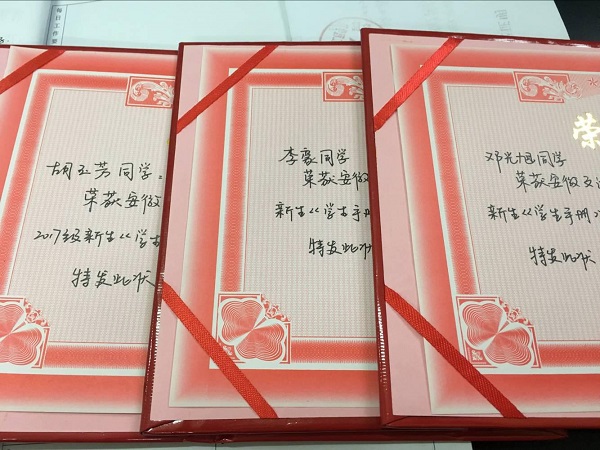 每日工作要
胡玉芳同学:
荣获安徽
2017级新生《学生
特发此状
李豪同学
荣获安徽
新生《学生手册
特发此状
荣
邓光旭同学
荣获安徽交通
新生《学生手册》
特发此状